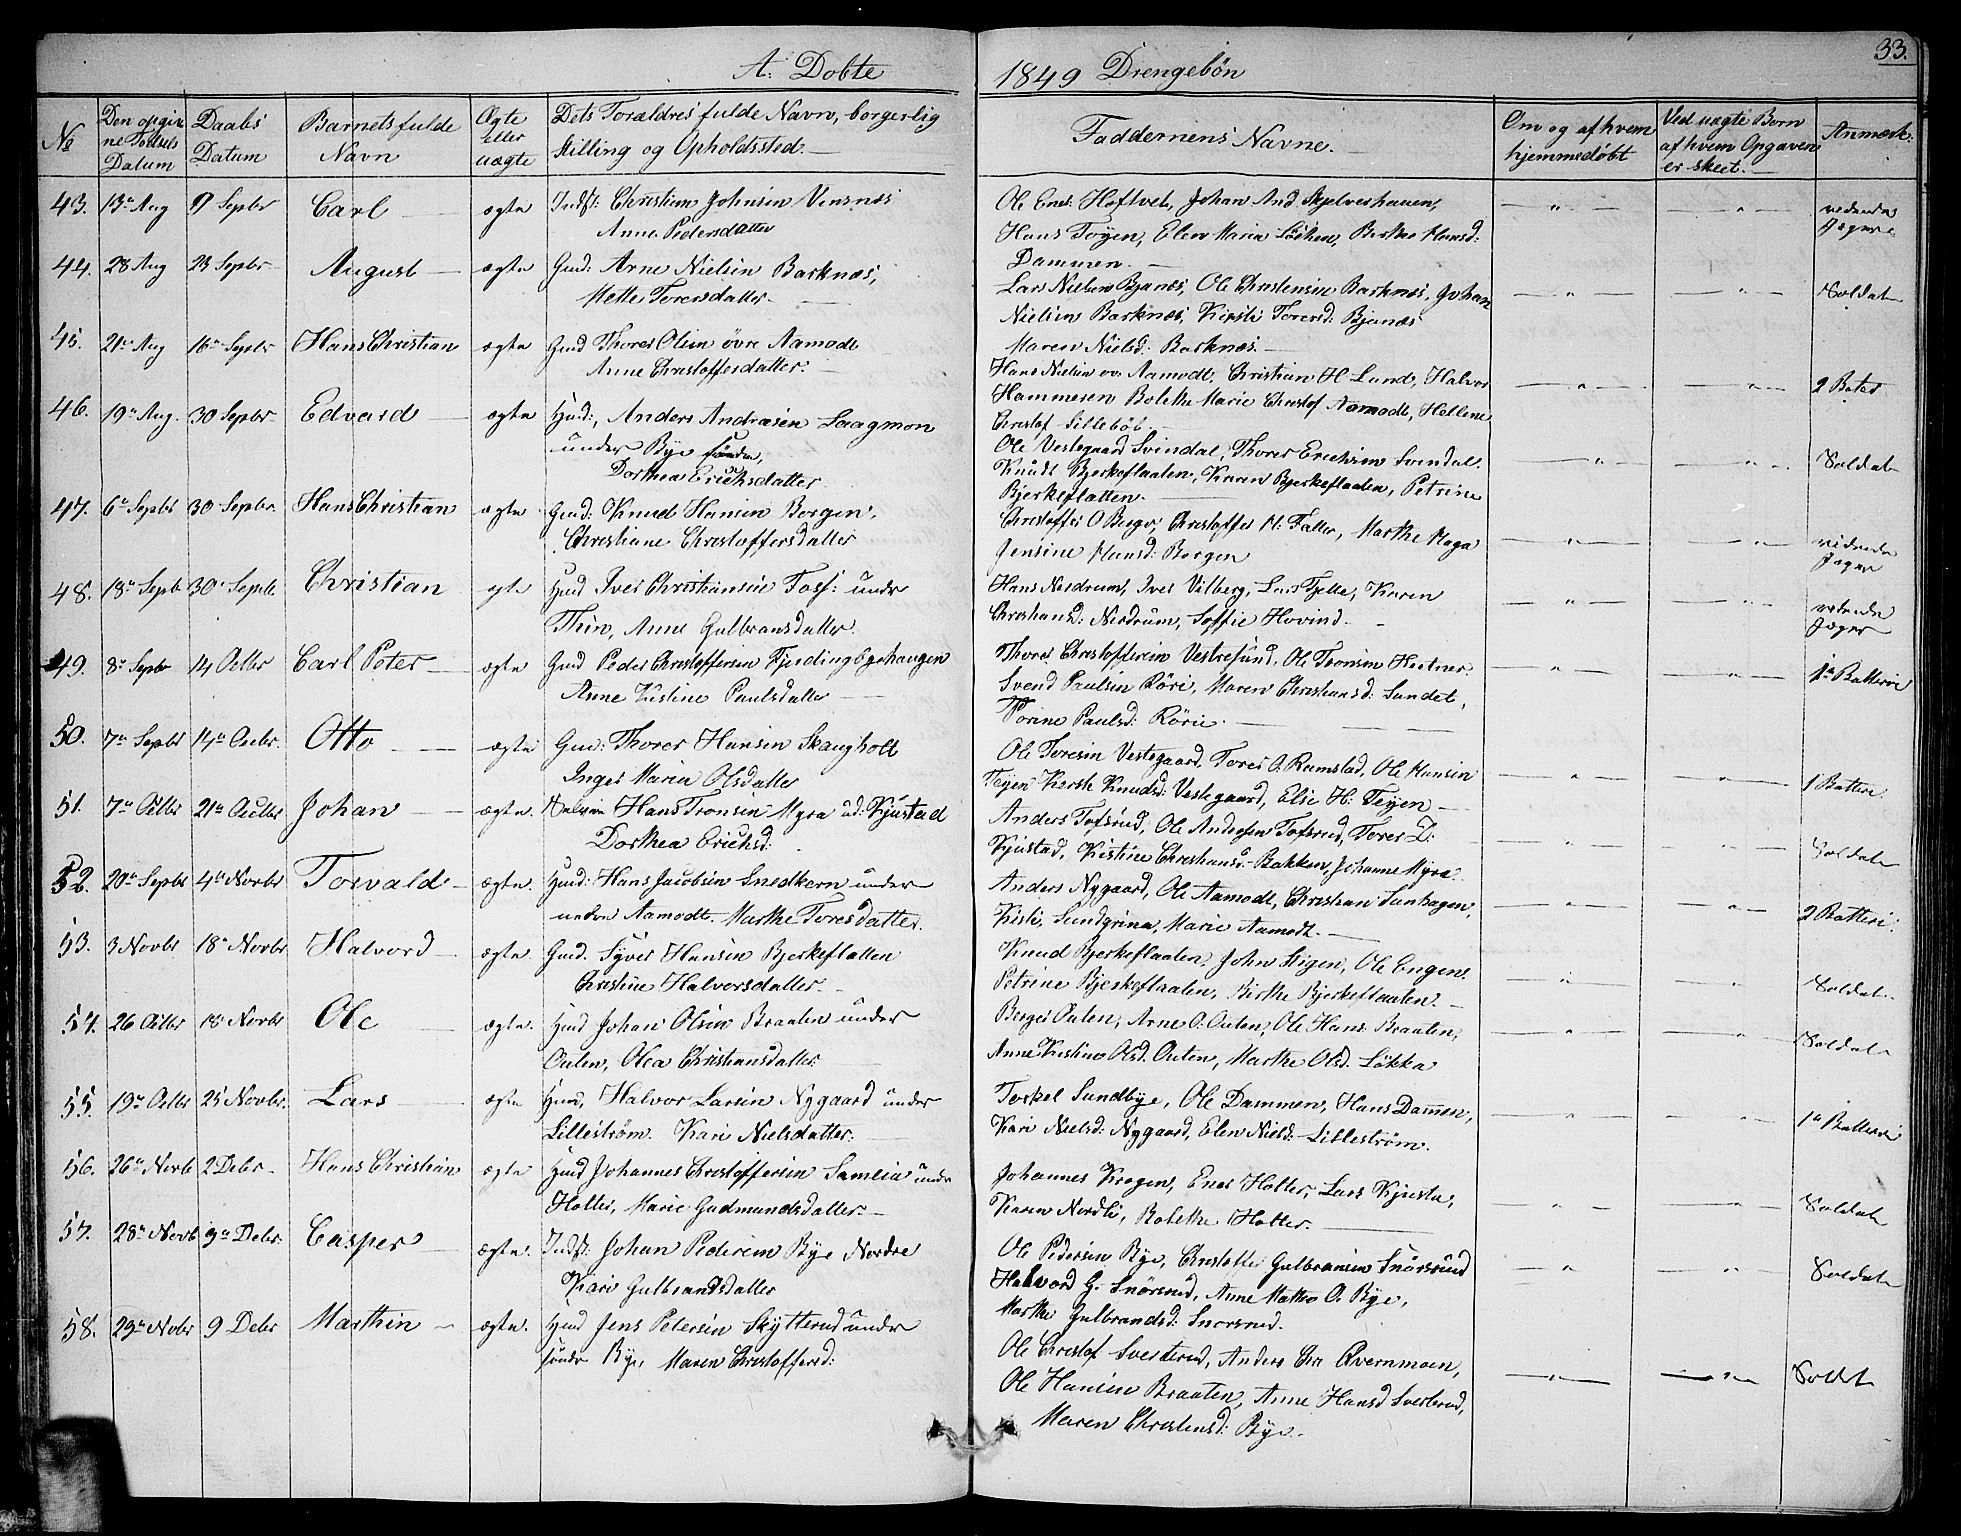 33.
A. Dobte 1849 Drengebøn
No
Den opgivne Fødsels Datum
Daabs Datum
Barnets fulde Navn
Ægte eller uægte
Dets Forældres fulde Navn, borgerlig Stilling og Opholdssted.
Faddernens Navne.
Om og af hvem hjemmedøbt
Ved uægte Børn af hvem Opgaven er skeet.
Anmærk:
43. 13de Aug 9 Septbr Carl ægte Indst: Christian Johnsen Vensnæs
Anne Pedersdatter
Ole Enes: Høftvet, Johan And. Skjelverhauen,
Hans Toyen, Elen Maria Løchen, Berthe Hansd:
Dammen.
ridende Jæger
44. 28 Aug 23 Septbr August ægte Gmd: Arne Nielsen Barknæs,
Mette Toresdatter
Lars Nielsen Bjanæs, Ole Christensen Barknæs, Johan
Nielsen Barknæs, Kirsti Toresd: Bjanæs
Maren Nielsd: Barknæs.
Soldat
45. 21de Aug 16de Septbr Hans Christian ægte Gmd Thores Olsen øvre Aamodt
Anne Christoffersdatter
Hans Nielsen ov. Aamodt, Christian H Lund, Halvor
Hammeren Bolethe Marie Christof Aamodt, Hellene
Christof Lillebøb.
2 Bates
46. 19de Aug. 30 Septbr Edvard ægte Huusd:, Anders Andræsen Saagmon
under Bye søndre,
Dorthea Erichsdatter
Ole Vestegaard Svindal, Thorer Erichsen Svendal
Knudt Bjerkeflaaten, Karen Bjerkeflaaten, Petrine
Bjerkeflatten.
Soldat
47. 6te Septbr 30 Septbr. Hans Christian ægte Gmd: Knud Hansen Borgen,
Christiane Christoffersdatter
Christoffer O Berger, Christoffer H: Faller, Marthe Haga
Jensine Hansd: Borgen
ridende Jæger
48. 18de Septb 30 Septb. Christian ægte Huusd Iver Christiansen Foss: under
Thin, Anne Gulbransdatter.
Hans Nordrum, Iver Vilberg, Lars Tjelle, Karen
Christiansd: Nordrum, Soffie Hovind.
ridende Jæger
49. 8de Septbr 14 Octbr Carl Peter ægte Gmd Peder Christoffersen Fjedingbyehaugen
Anne Kistine Paulsdatter
Thorer Christoffersen Vestresund, Ole Tronsen Heitner
Svend Paulsen Röri, Maren Christiansd: Sundet,
Torine Paulsd: Rörie.
1ste Batterie
50. 7de Septbr 14de Octbr. Otto ægte Gmd: Thorer Hansen Skaugholt
Inger Maria Olsdatter
Ole Toresen Vestegaard, Torer O. Ramstad, Ole Hansen
Teyen Kirsth Knudsd: Vestegaard, Else H: Teyen
1 Batteri.
51. 7de Octbr 21de Octbr Johan ægte. Hans Tronsen Myra ud: Kjustad
Dorthea Erichsd:
Anders Tofsrud, Ole Andersen Tofsrud, Torer D:
Kjustad, Kistine Christiansd: Bakken, Johanne Myra.
Soldat
52. 20de Septbr 4de Novbr Torvald ægte. Huusd: Hans Jacobsen Snedkern under
nedre Aamodt. Marthe Toresdatter.
Anders Nygaard, Ole Aamodt, Christian Sunhagen,
Kisti, Sundgrina, Marie Aamodt.
2 Batteri.
53. 3 Novbr 18de Novbr Halvord ægte. Gmd. Syver Hansen Bjerkeflatten
Christine Halvorsdatter.
Knud Bjerkeflaaten, John Stigen, Ole Engen.
Petrine Bjerkeflaaten, Birthe Bjerkeflaaten.
Soldat.
54. 26 Octbr 18 Novbr Ole ægte. Huusd Johan Olsen Braaten under
Outen, Olea Christiansdatter
Berger Outen, Arne O. Outen, Ole Hans: Braaten,
Anne Kistine Olsd. Outen, Marthe Olsd. Løkka
Soldat
55. 19de Octbr 25 Novbr. Lars ægte Huusd, Halvor Larsen Nygaard under
Lilleström. Kari Nielsdatter.
Torkel Sundbye, Ole Dammen, Hans Dammen,
Kari Nielsd: Nygaard, Elen Nield: Lilleström.
1ste Batteri
56. 26de Novb 2 Debr Hans Christian ægte Huusd Johannes Christoffersen Samsia under
Holter, Marie Gudmundsdatter.
Johannes Kragen, Ener Holter, Lars Kjusta,
Karen Nordli, Bolethe Holter.
Soldat
57. 28de Novb 9de Debr. Casper ægte. Indst: Johan Pedersen Bye Nordre
Kari Gulbrandsdatter
Ole Pedersen Bye, Christoffer Gulbransen Snörsrud
Halvord G. Snörsrud, Anne Mathea O. Bye,
Marthe Gulbrandsd: Snorsrud.
Soldat
58. 29de Novbr 9 Debr Marthin ægte. Huusd Jens Petersen Skytterud under
søndr Bye, Maren Christoffersd:
Ole Christof Sverterud, Anders Chr Qvernmoen,
Ole Hansen Braaten, Anne Hansd Sverterud,
Maren Christensd: Bye.
Soldat